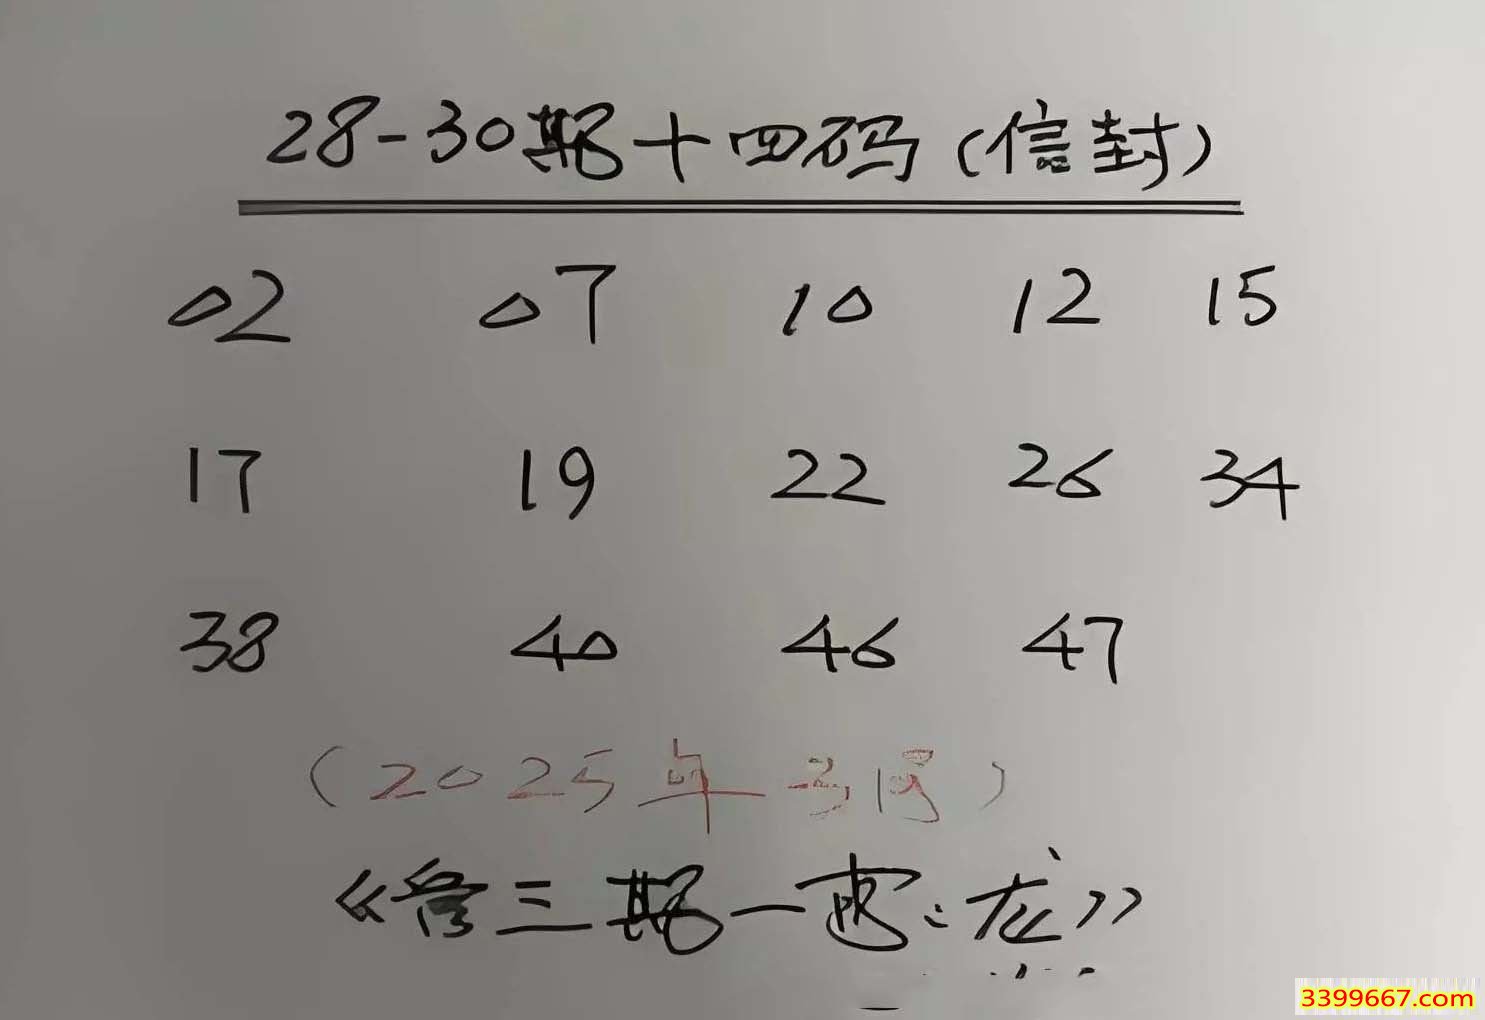 28-30期十四码(信封)
02 07 10 12 15
17 19 22 26 34
38 40 46 47
(2025年3月)
《各三期一肖:龙》
3399667.com